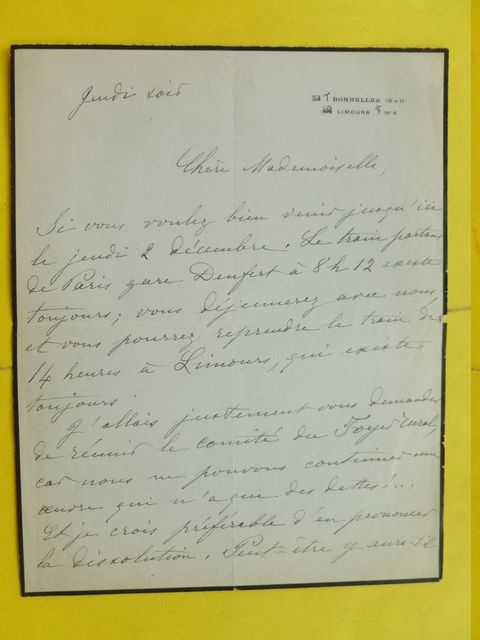 Jeudi soir
BONNELLES S & O
LIMOURS Nº 8
Chère Mademoiselle,
Si vous voulez bien venir jusqu'ici
le jeudi 2 décembre. Le train partant
de Paris gare Denfert à 8h12 existe
toujours; vous déjeunerez avec nous
et vous pourrez reprendre le train de
14 heures à Limours, qui existe
toujours!
J'allais justement vous demander
de réunir le comité du Foyer rural,
car nous ne pouvons continuer une
œuvre qui n'a que des dettes!...
Et je crois préférable d'en prononcer
la dissolution. Peut-être y aura-t-il